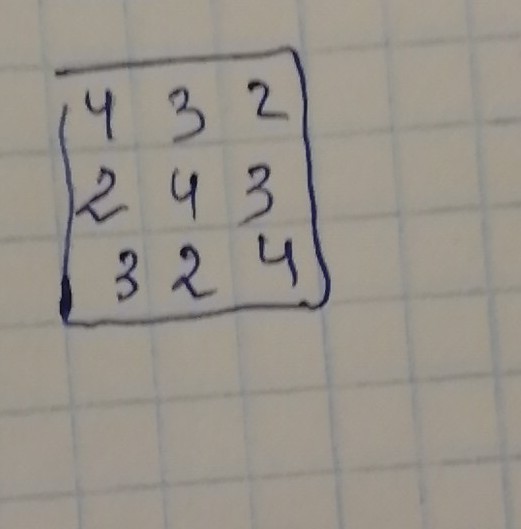 4 3 2
2 4 3
3 2 4